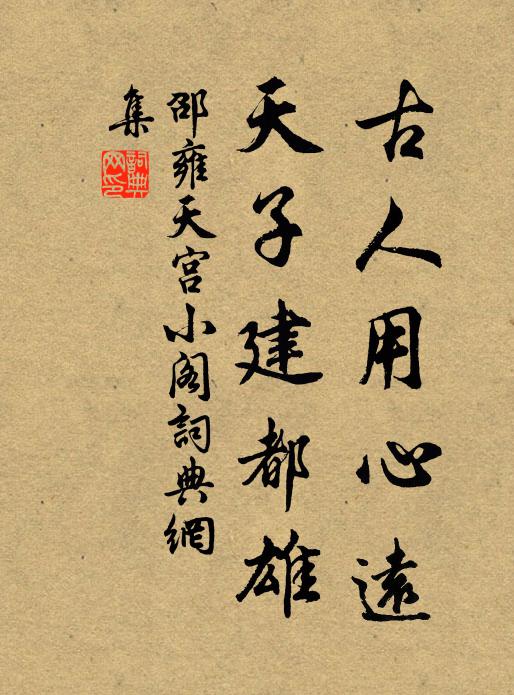 古人用心遠
天子建都雄
邵雍天宫小阁詞典網
集
詞典网印